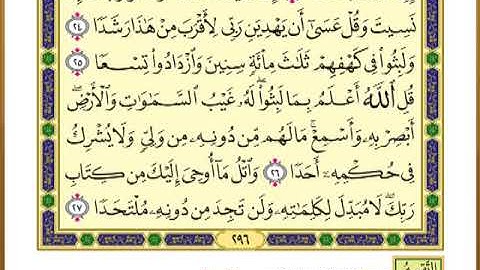 نَسِيتَ وَقُلْ عَسَىٰٓ أَن يَهْدِيَنِ رَبِّى لِأَقْرَبَ مِنْ هَٰذَا رَشَدًا ٢٤
وَلَبِثُوا۟ فِى كَهْفِهِمْ ثَلَٰثَ مِا۟ئَةٍ سِنِينَ وَٱزْدَادُوا۟ تِسْعًا ٢٥
قُلِ ٱللَّهُ أَعْلَمُ بِمَا لَبِثُوا۟ ۖ لَهُۥ غَيْبُ ٱلسَّمَٰوَٰتِ وَٱلْأَرْضِ ۖ
أَبْصِرْ بِهِۦ وَأَسْمِعْ ۚ مَا لَهُم مِّن دُونِهِۦ مِن وَلِىٍّ وَلَا يُشْرِكُ
فِى حُكْمِهِۦٓ أَحَدًا ٢٦ وَٱتْلُ مَآ أُوحِىَ إِلَيْكَ مِن كِتَابِ
رَبِّكَ ۖ لَا مُبَدِّلَ لِكَلِمَٰتِهِۦ وَلَن تَجِدَ مِن دُونِهِۦ مُلْتَحَدًا ٢٧
٢٩٦